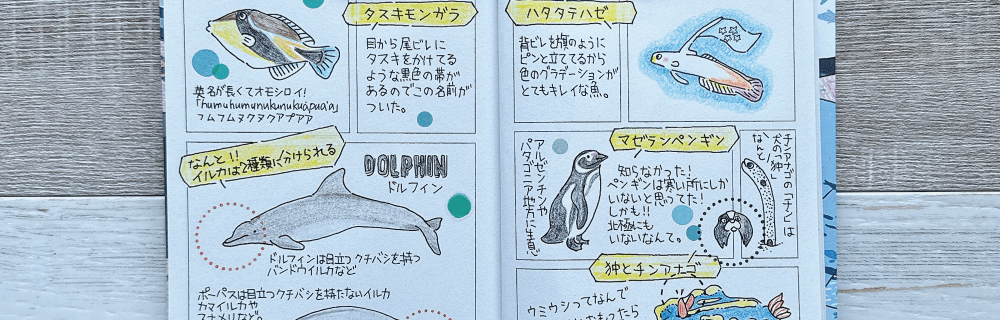 タスキモンガラ
目から尾ビレに
タスキをかけてる
ような黒色の帯が
あるのでこの名前が
ついた。
英名が長くてオモシロイ!
「humuhumunukunukuāpua'a」
フムフムヌクヌクアプアア
なんと!!
イルカは2種類に分けられる
DOLPHIN
ドルフィン
ドルフィンは目立つクチバシを持つ
バンドウイルカなど
ポーパスは目立つクチバシを持たないイルカ
カマイルカや
スナメリなど。
ハタタテハゼ
背ビレを旗のように
ピンと立ててるから
色のグラデーションが
とてもキレイな魚。
マゼランペンギン
アルゼンチンや
パタゴニア地方に生息
知らなかった!
ペンギンは寒い所にしか
いないと思ってた!
しかも!!
北極にも
いないなんて。
チンアナゴの「チン」は
犬の「狆」
なんと
狆とチンアナゴ
ウミウシってなんで